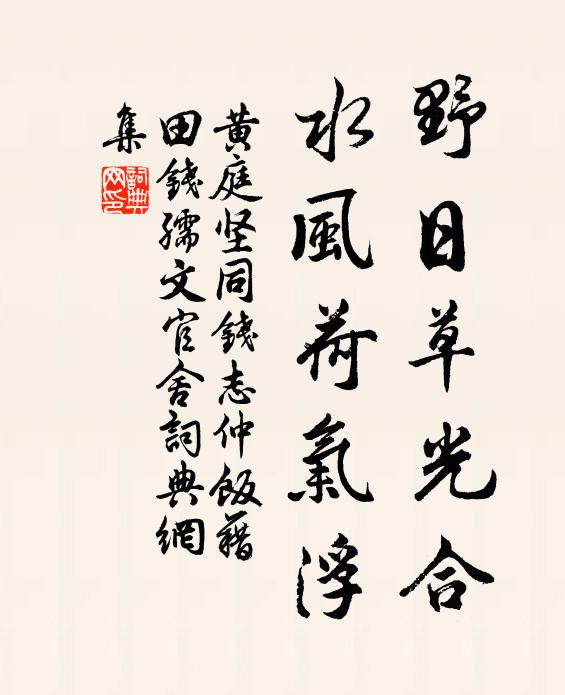 野日草光合
水風荷氣浮
黄庭坚同錢志仲飯籍
田錢孺文官舍詞典網
集
詞典网印